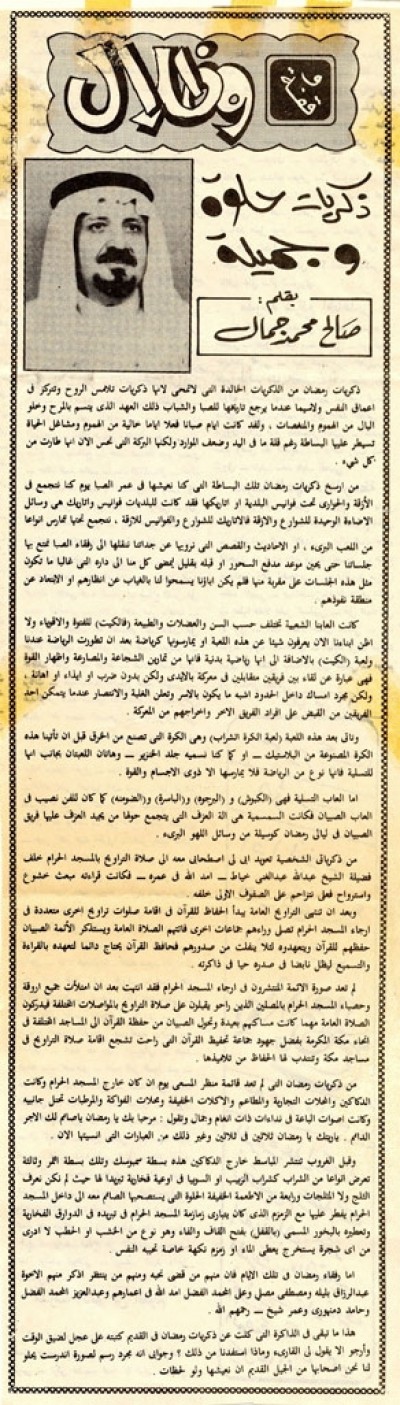 وظلال
ذكريات حلوة
وجميلة
بقلم :
صالح محمد جمال
ذكريات رمضان من الذكريات الخالدة التى لاتمحى لانها ذكريات تلامس الروح وتتركز فى
اعماق النفس ولاسيما عندما يرجع تاريخها للصبا والشباب ذلك العهد الذى يتسم بالمرح وخلو
البال من الهموم والمنغصات ، ولقد كانت ايام صبانا فعلا اياما خالية من الهموم ومشاغل الحياة
تسيطر عليها البساطة رغم قلة ما فى اليد وضعف الموارد ولكنها البركة التى نحس الان انها طارت من
كل شىء .
من ارسخ ذكريات رمضان تلك البساطة التى كنا نعيشها فى عمر الصبا يوم كنا نتجمع فى
الأزقة والحوارى تحت فوانيس البلدية او اتاريكها فقد كانت للبلديات فوانيس واتاريك هى وسائل
الاضاءة الوحيدة للشوارع والازقة فالاتاريك للشوارع والفوانيس للازقة ، نتجمع تحتها نمارس انواعا
من اللعب البرىء ، او الاحاديث والقصص التى نرويها عن جداتنا ننقلها الى رفقاء الصبا نمتع بها
جلساتنا حتى يحين موعد مدفع السحور او قبله بقليل ليمضى كل منا الى داره التى غالبا ما تكون
مثل هذه الجلسات على مقربة منها فلم يكن اباؤنا يسمحوا لنا بالغياب عن انظارهم او الابتعاد عن
منطقة نفوذهم .
كانت العابنا الشعبية تختلف حسب السن والعضلات والطبيعة (فالكبت) للفتوة والاقوياء ولا
اظن ابناءنا الان يعرفون شيئا عن هذه اللعبة او يمارسونها كرياضة بعد ان تطورت الرياضة عندنا
ولعبة (الكبت) بالاضافة الى انها رياضية بدنية فانها من تمارين الشجاعة والمصارعة واظهار القوة
فهى عبارة عن لقاء بين فريقين متقابلين فى معركة بالايدى ولكن بدون ضرب او ايذاء او اهانة ،
ولكن مجرد امساك داخل الحدود اشبه ما يكون بالاسر وتعلن الغلبة والانتصار عندما يتمكن احد
الفريقين من القبض على افراد الفريق الاخر واخراجهم من المعركة .
وتأتى بعد هذه اللعبة (لعبة الكرة الشراب) وهى الكرة التى تصنع من الخرق قبل ان تأتينا هذه
الكرة المصنوعة من البلاستيك ــ او كما كنا نسميه جلد الخنزير ــ وهاتان اللعبتان بجانب انها
للتسلية فانها نوع من الرياضة فلا يمارسها الا ذوى الاجسام والقوة .
اما العاب التسلية فهى (الكبوش) و (البرجوه) و(الباسرة) و(الضومنه) كما كان للفن نصيب فى
العاب الصبيان فكانت السمسمية هى الة العزف التى يتجمع حولها من يجيد العزف عليها فريق
الصبيان فى ليالى رمضان كوسيلة من وسائل اللهو البرىء .
من ذكرياتى الشخصية تعويد ابى لى اصطحابى معه الى صلاة التراويح بالمسجد الحرام خلف
فضيلة الشيخ عبدالله عبدالغنى خياط ــ امد الله فى عمره ــ فكانت قراءته مبعث خشوع
واسترواح فعلى نتزاحم على الصفوف الاولى خلفه .
وبعد ان تنتهى التراويح العامة يبدأ الحفاظ للقرآن فى اقامة صلوات تراويح اخرى متعددة فى
ارجاء المسجد الحرام تصلى وراءهم جماعات اخرى فاتتهم الصلاة العامة ويستذكر الأئمة الصبيان
حفظهم للقرآن ويتعهدوه لئلا يتفلت من صدورهم فحافظ القرآن يحتاج دائما لتعهده بالقراءة
والتسميع ليظل نابضا فى صدره حيا فى ذاكرته .
لم تعد صورة الائمة المنتشرون فى ارجاء المسجد الحرام فقد انتهت بعد ان امتلأت جميع اروقة
وحصباء المسجد الحرام بالمصلين الذين راحو يقبلون على صلاة التراويح بالمواصلات المختلفة فيدركون
الصلاة العامة مهما كانت مساكنهم بعيدة وتحول الصبيان من حفظة القرآن الى المساجد المختلفة فى
انحاء مكة المكرمة بفضل جهود جماعة تحفيظ القرآن التى راحت تشجع اقامة صلاة التراويح فى
مساجد مكة وتنتدب لها الحفاظ من تلاميذها .
من ذكريات رمضان التى لم تعد قائمة منظر المسعى يوم ان كان خارج المسجد الحرام وكانت
الدكاكين والمحلات التجارية والمطاعم والاكلات الخفيفة ومحلات الفواكة والمرطبات تحتل جانبيه
وكانت اصوات الباعة فى نداءات ذات انغام وجمال وتقول : مرحبا بك يا رمضان ياصائم لك الاجر
الدائم . ياريتك يا رمضان ثلاثين فى ثلاثين وغير ذلك من العبارات التى انسيتها الان .
وقبل الغروب تنتشر المباسط خارج الدكاكين هذه بسطة سمبوسك وتلك بسطة اللحم وثالثة
تعرض انواعا من الشراب كشراب الزبيب او السوبيا فى اوعية فخارية تبريدا لها حيث لم نكن نعرف
الثلج ولا المثلجات ورابعة من الاطعمة الخفيفة الحلوة التى يستصحبها الصائم معه الى داخل المسجد
الحرام يفطر عليها مع الزمزم الذى كان يتبارى زمازمة المسجد الحرام فى تبريده فى الدوارق الفخارية
وتعطيره بالبخور المسمى (بالقفل) بفتح القاف والفاء وهو نوع من الخشب او الحطب لا ادرى
من اى شجرة يستخرج يعطى الماء او زمزم نكهة خاصة تحييه النفس .
اما رفقاء رمضان فى تلك الايام فان منهم من قضى نحبه ومنهم من ينتظر اذكر منهم الاخوة
عبدالرزاق بليله ومصطفى مصلى وعلى المحمد الفضل امد الله فى اعمارهم وعبدالعزيز المحمد الفضل
وحامد دمنهورى وعمر شيخ ــ رحمهم الله .
هذا ما تبقى فى الذاكرة التى كلت عن ذكريات رمضان فى القديم كتبته على عجل لضيق الوقت
وأرجو الا يقول لى القارىء وماذا استفدنا من ذلك ؟ وجوابى انه مجرد رسم لصورة اندرست يحلو
لنا نحن اصحابها من الجيل القديم ان نعيشها ولو لحظات .